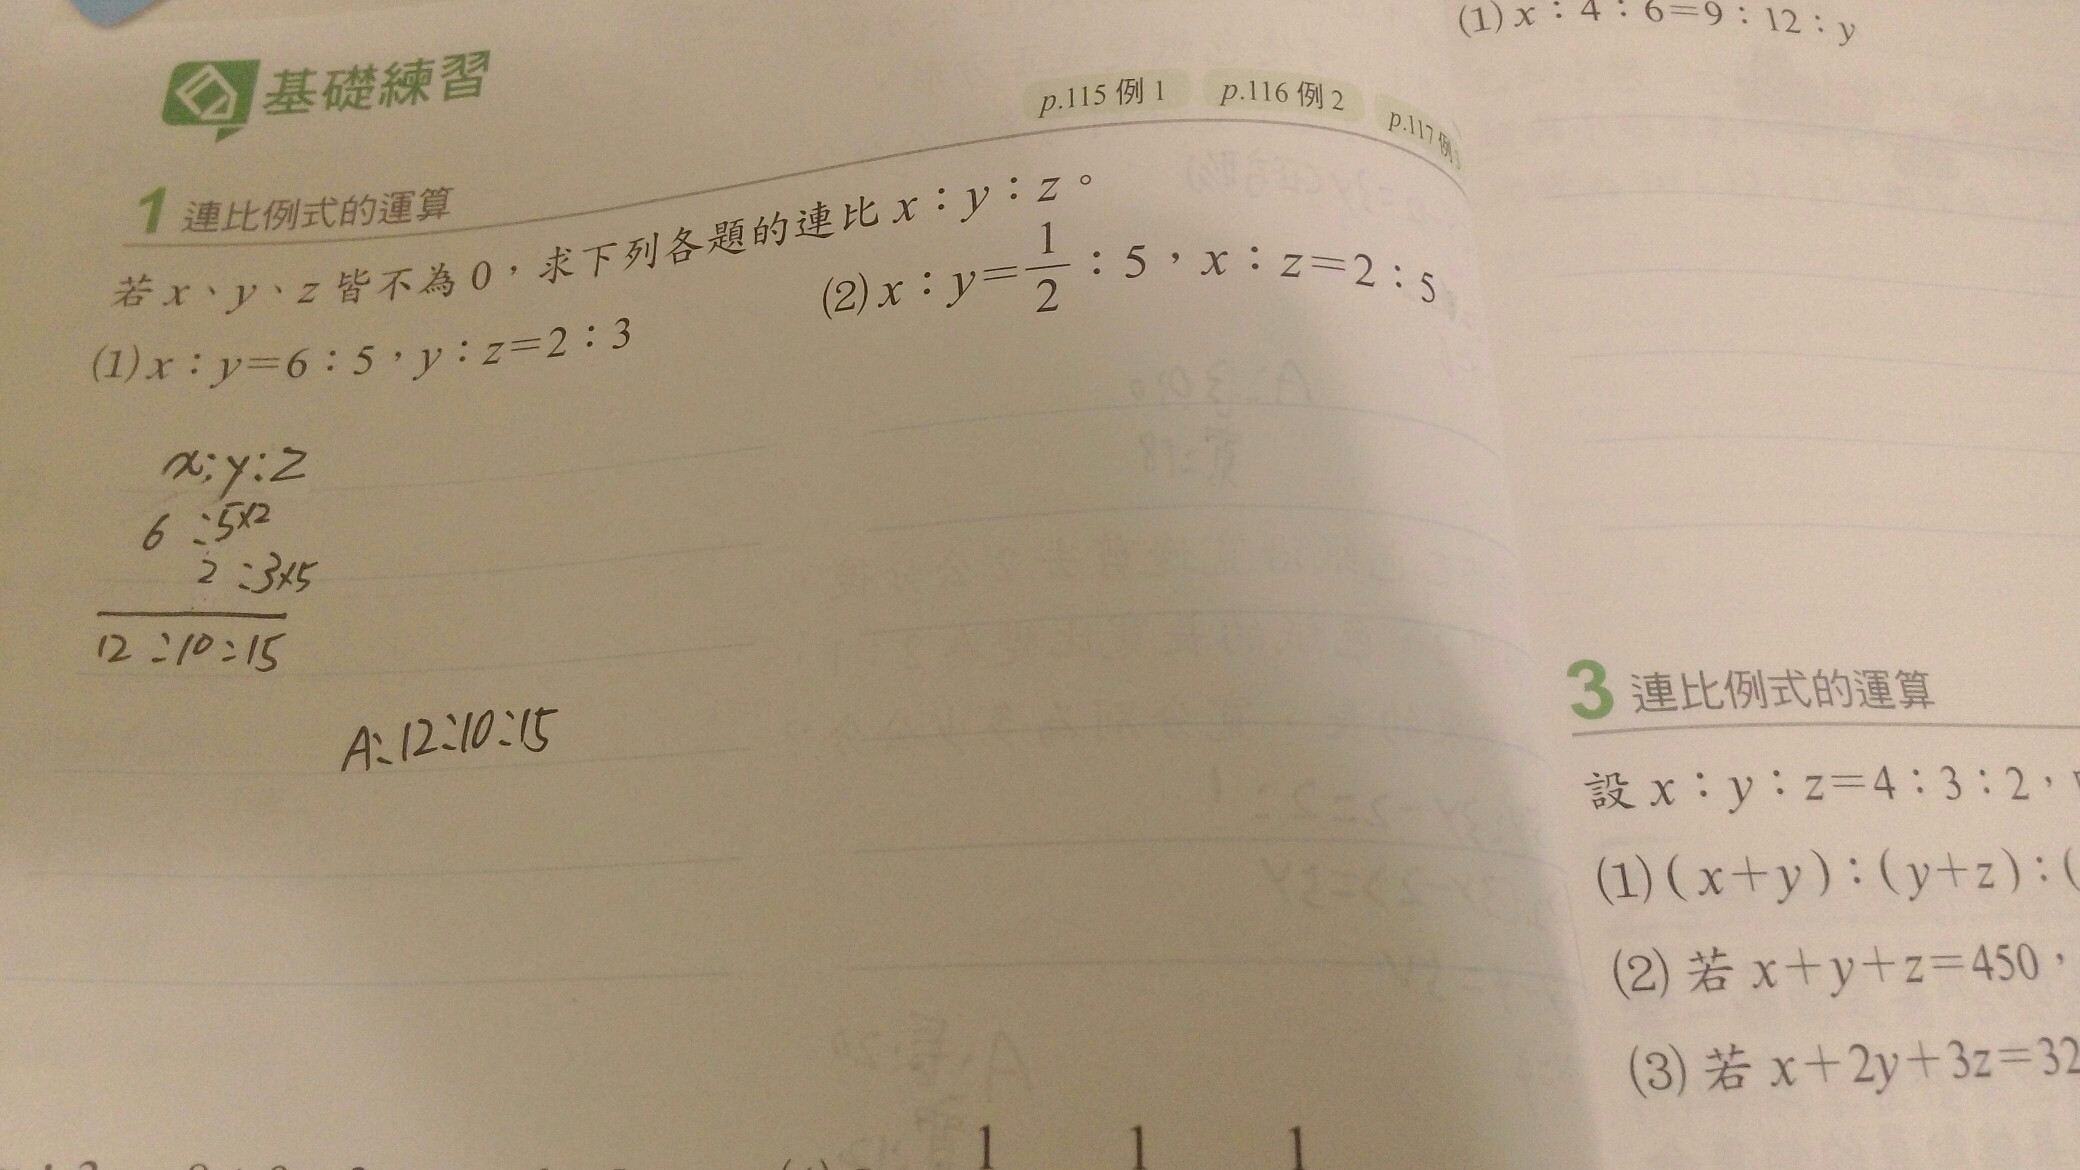 基礎練習
p.115 例 1 p.116 例 2 p.117 例
1 連比例式的運算
若 x、y、z 皆不為 0，求下列各題的連比 x：y：z。
(1) x：y=6：5，y：z=2：3
x:y:z
6 :5×2
2 :3×5
12:10:15
A:12:10:15
(2) x：y=1/2：5，x：z=2：5
1 1 1
(1) x：4：6=9：12：y
3 連比例式的運算
設 x：y：z=4：3：2，
(1) ( x+y )：( y+z )：(
(2) 若 x+y+z=450，
(3) 若 x+2y+3z=32